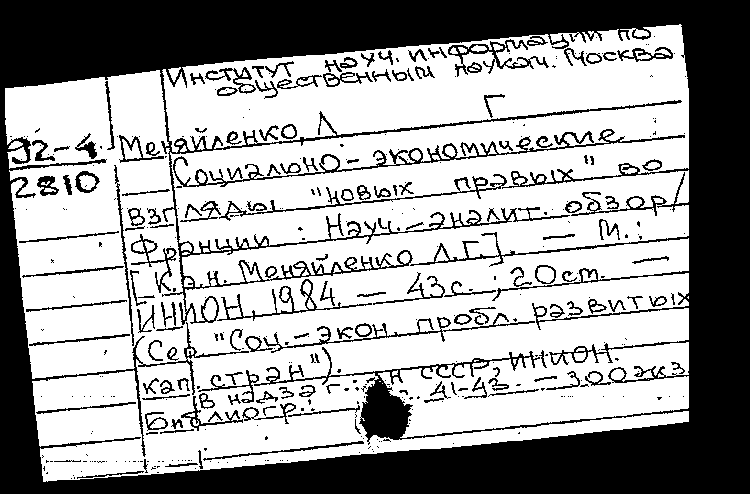 Институт науч. информации по
общественным наукам. Москва.
92-4
2810
Меняйленко, Л Г
Социально-экономические
взгляды "новых правых" во
Франции : Науч.-аналит. обзор/
[К.э.н. Меняйленко Л.Г.]. — М.:
ИНИОН, 1984. — 43с. ; 20ст. —
(Сер "Соц.-экон. пробл. развитых
кап. стран").
В надзаг.: АН СССР, ИНИОН.
Библиогр.: с. 41-43. — 300экз